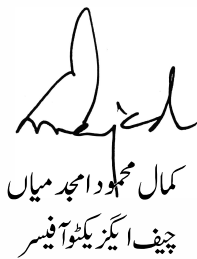 کمال محمود امجد میاں
چیف ایگزیکٹو آفیسر